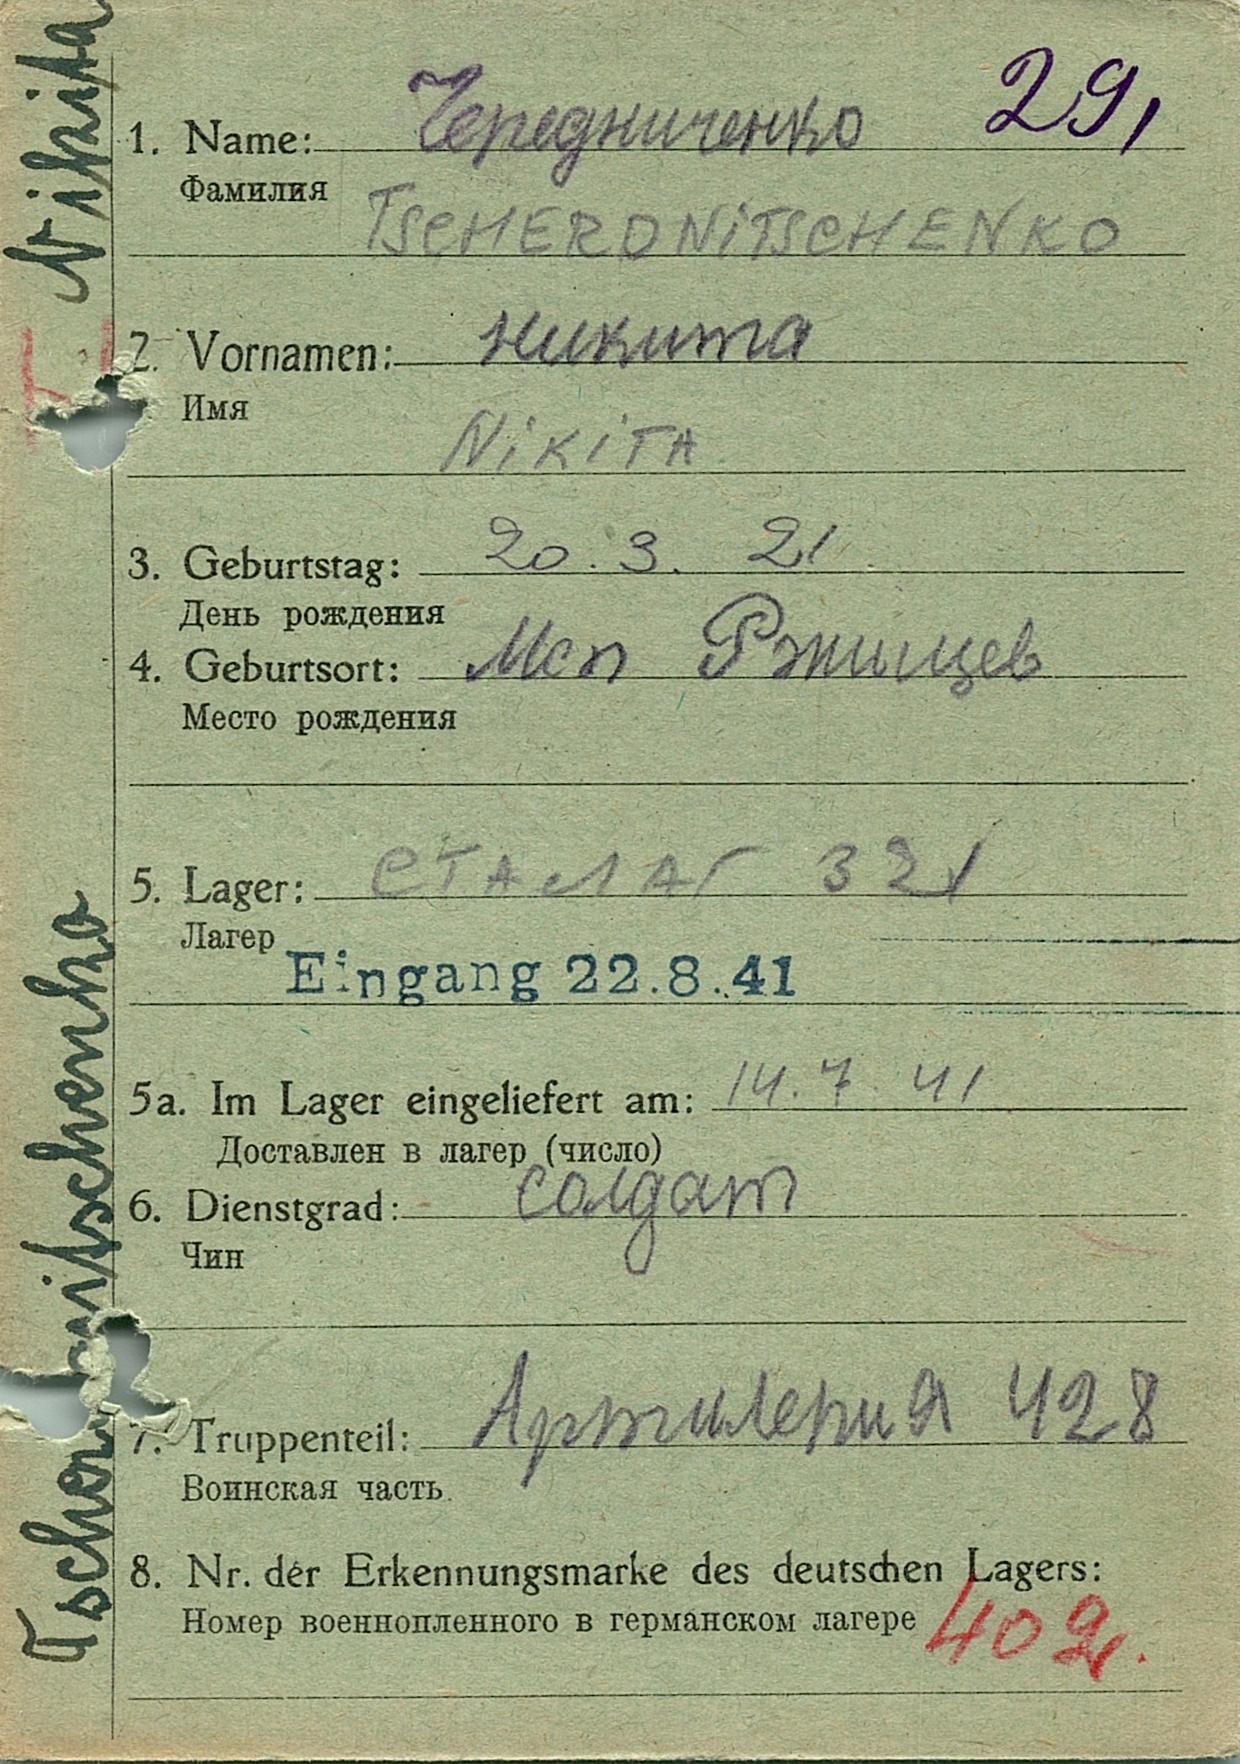 29,
1. Name: Чередниченко
Фамилия
TSCHERDNITSCHENKO
2. Vornamen: Никита
Имя
NIKITA
3. Geburtstag: 20.3. 21
День рождения
4. Geburtsort: Мсп Ржищев
Место рождения
5. Lager: СТАЛАГ 321
Лагер
Eingang 22.8.41
5a. Im Lager eingeliefert am: 14.7 41
Доставлен в лагер (число)
6. Dienstgrad: солдат
Чин
7. Truppenteil: Артилерия 428
Воинская часть
8. Nr. der Erkennungsmarke des deutschen Lagers:
Номер военнопленного в германском лагере 402.
Nikita